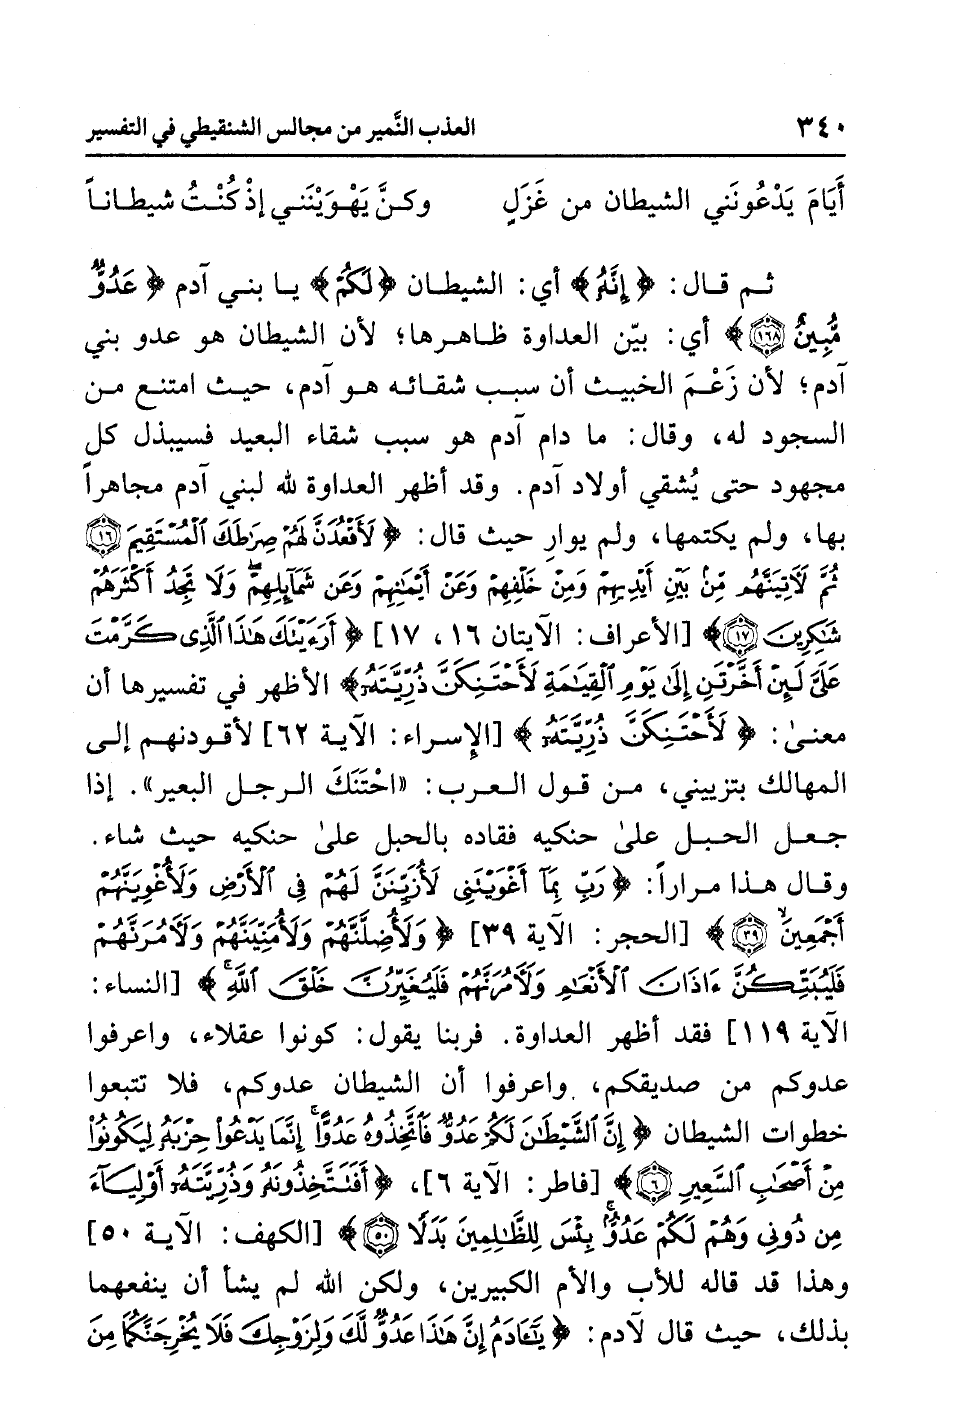 ٣٤٠ العذب النَّمير من مجالس الشنقيطي في التفسير
أَيَامَ يَدْعُونَني الشيطان من غَزَلٍ وكـنَّ يَهْـوَيْنَنـي إذْ كُنْـتُ شيطـانـاً
ثـم قـال: ﴿ إِنَّهُ ﴾ أي: الشيطـان ﴿لَكُمْ﴾ يـا بنـي آدم ﴿ عَدُوٌّ
مُّبِينٌ ١٦٨ ﴾ أي: بيّن العداوة ظـاهـرهـا؛ لأن الشيطان هو عدو بني
آدم؛ لأن زَعْـمَ الخبيـث أن سبـب شقـائـه هـو آدم، حيـث امتنـع مـن
السجود له، وقال: ما دام آدم هو سبب شقاء البعيد فسيبذل كل
مجهود حتى يُشقي أولاد آدم. وقد أظهر العداوة لله لبني آدم مجاهراً
بها، ولم يكتمها، ولم يوارِ حيث قال: ﴿ لَأَقْعُدَنَّ لَهُمْ صِرَٰطَكَ ٱلْمُسْتَقِيمَ ١٦
ثُمَّ لَآتِيَنَّهُم مِّنۢ بَيْنِ أَيْدِيهِمْ وَمِنْ خَلْفِهِمْ وَعَنْ أَيْمَٰنِهِمْ وَعَن شَمَآئِلِهِمْ وَلَا تَجِدُ أَكْثَرَهُمْ
شَٰكِرِينَ ١٧﴾ [الأعراف: الآيتان ١٦، ١٧] ﴿ أَرَءَيْتَكَ هَٰذَا ٱلَّذِى كَرَّمْتَ
عَلَىَّ لَئِنْ أَخَّرْتَنِ إِلَىٰ يَوْمِ ٱلْقِيَٰمَةِ لَأَحْتَنِكَنَّ ذُرِّيَّتَهُۥ﴾ الأظهر في تفسيرها أن
معنىٰ: ﴿ لَأَحْتَنِكَنَّ ذُرِّيَّتَهُۥ ﴾ [الإسراء: الآية ٦٢] لأقودنهم إلى
المهالك بتزييني، مـن قـول العـرب: «احْتَنَكَ الـرجـل البعيـر». إذا
جعـل الحبـل علىٰ حنكيه فقاده بالحبل علىٰ حنكيه حيث شاء.
وقـال هـذا مـراراً: ﴿ رَبِّ بِمَآ أَغْوَيْتَنِى لَأُزَيِّنَنَّ لَهُمْ فِى ٱلْأَرْضِ وَلَأُغْوِيَنَّهُمْ
أَجْمَعِينَ ٣٩ ﴾ [الحجر: الآية ٣٩] ﴿ وَلَأُضِلَّنَّهُمْ وَلَأُمَنِّيَنَّهُمْ وَلَآمُرَنَّهُمْ
فَلَيُبَتِّكُنَّ ءَاذَانَ ٱلْأَنْعَٰمِ وَلَآمُرَنَّهُمْ فَلَيُغَيِّرُنَّ خَلْقَ ٱللَّهِ ﴾ [النساء:
الآية ١١٩] فقد أظهر العداوة. فربنا يقول: كونوا عقلاء، واعرفوا
عدوكم من صديقكم، واعرفوا أن الشيطان عدوكم، فلا تتبعوا
خطوات الشيطان ﴿ إِنَّ ٱلشَّيْطَٰنَ لَكُمْ عَدُوٌّ فَٱتَّخِذُوهُ عَدُوًّا إِنَّمَا يَدْعُوا۟ حِزْبَهُۥ لِيَكُونُوا۟
مِنْ أَصْحَٰبِ ٱلسَّعِيرِ ٦﴾ [فاطر: الآية ٦]، ﴿ أَفَتَتَّخِذُونَهُۥ وَذُرِّيَّتَهُۥٓ أَوْلِيَآءَ
مِن دُونِى وَهُمْ لَكُمْ عَدُوٌّۢ بِئْسَ لِلظَّٰلِمِينَ بَدَلًا ٥٠ ﴾ [الكهف: الآيـة ٥٠]
وهـذا قد قاله للأب والأم الكبيرين، ولكن الله لم يشأ أن ينفعهما
بذلك، حيث قال لآدم: ﴿ يَٰٓـَٔادَمُ إِنَّ هَٰذَا عَدُوٌّ لَّكَ وَلِزَوْجِكَ فَلَا يُخْرِجَنَّكُمَا مِنَ